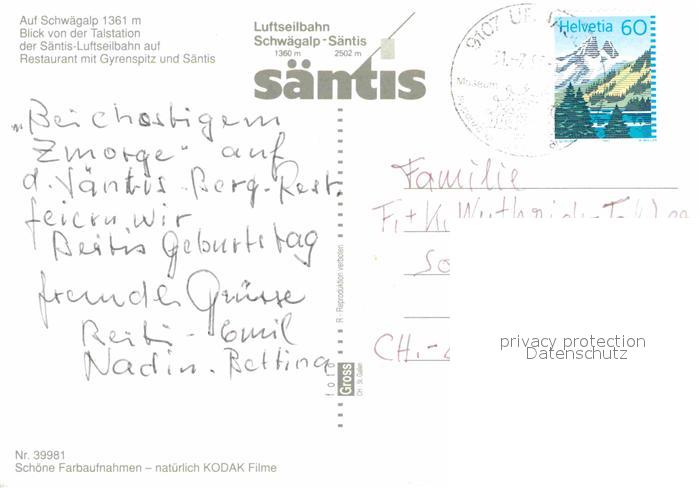 Auf Schwägalp 1361 m
Blick von der Talstation
der Säntis-Luftseilbahn auf
Restaurant mit Gyrenspitz und Säntis
Luftseilbahn
Schwägalp - Säntis
1360 m 2502 m
säntis
9107
Museum
Helvetia 60
„Beichostigem
Zmorge“ auf
d. Säntis-Berg-Rest.
feiern wir
Reitis Geburtstag
Grüsse
Reiti - Emil
Nadin - Bettina
Familie
F. + K.
CH.-
R - Reproduktion verboten
foto
Gross
CH - St. Gallen
privacy protection
Datenschutz
Nr. 39981
Schöne Farbaufnahmen – natürlich KODAK Filme